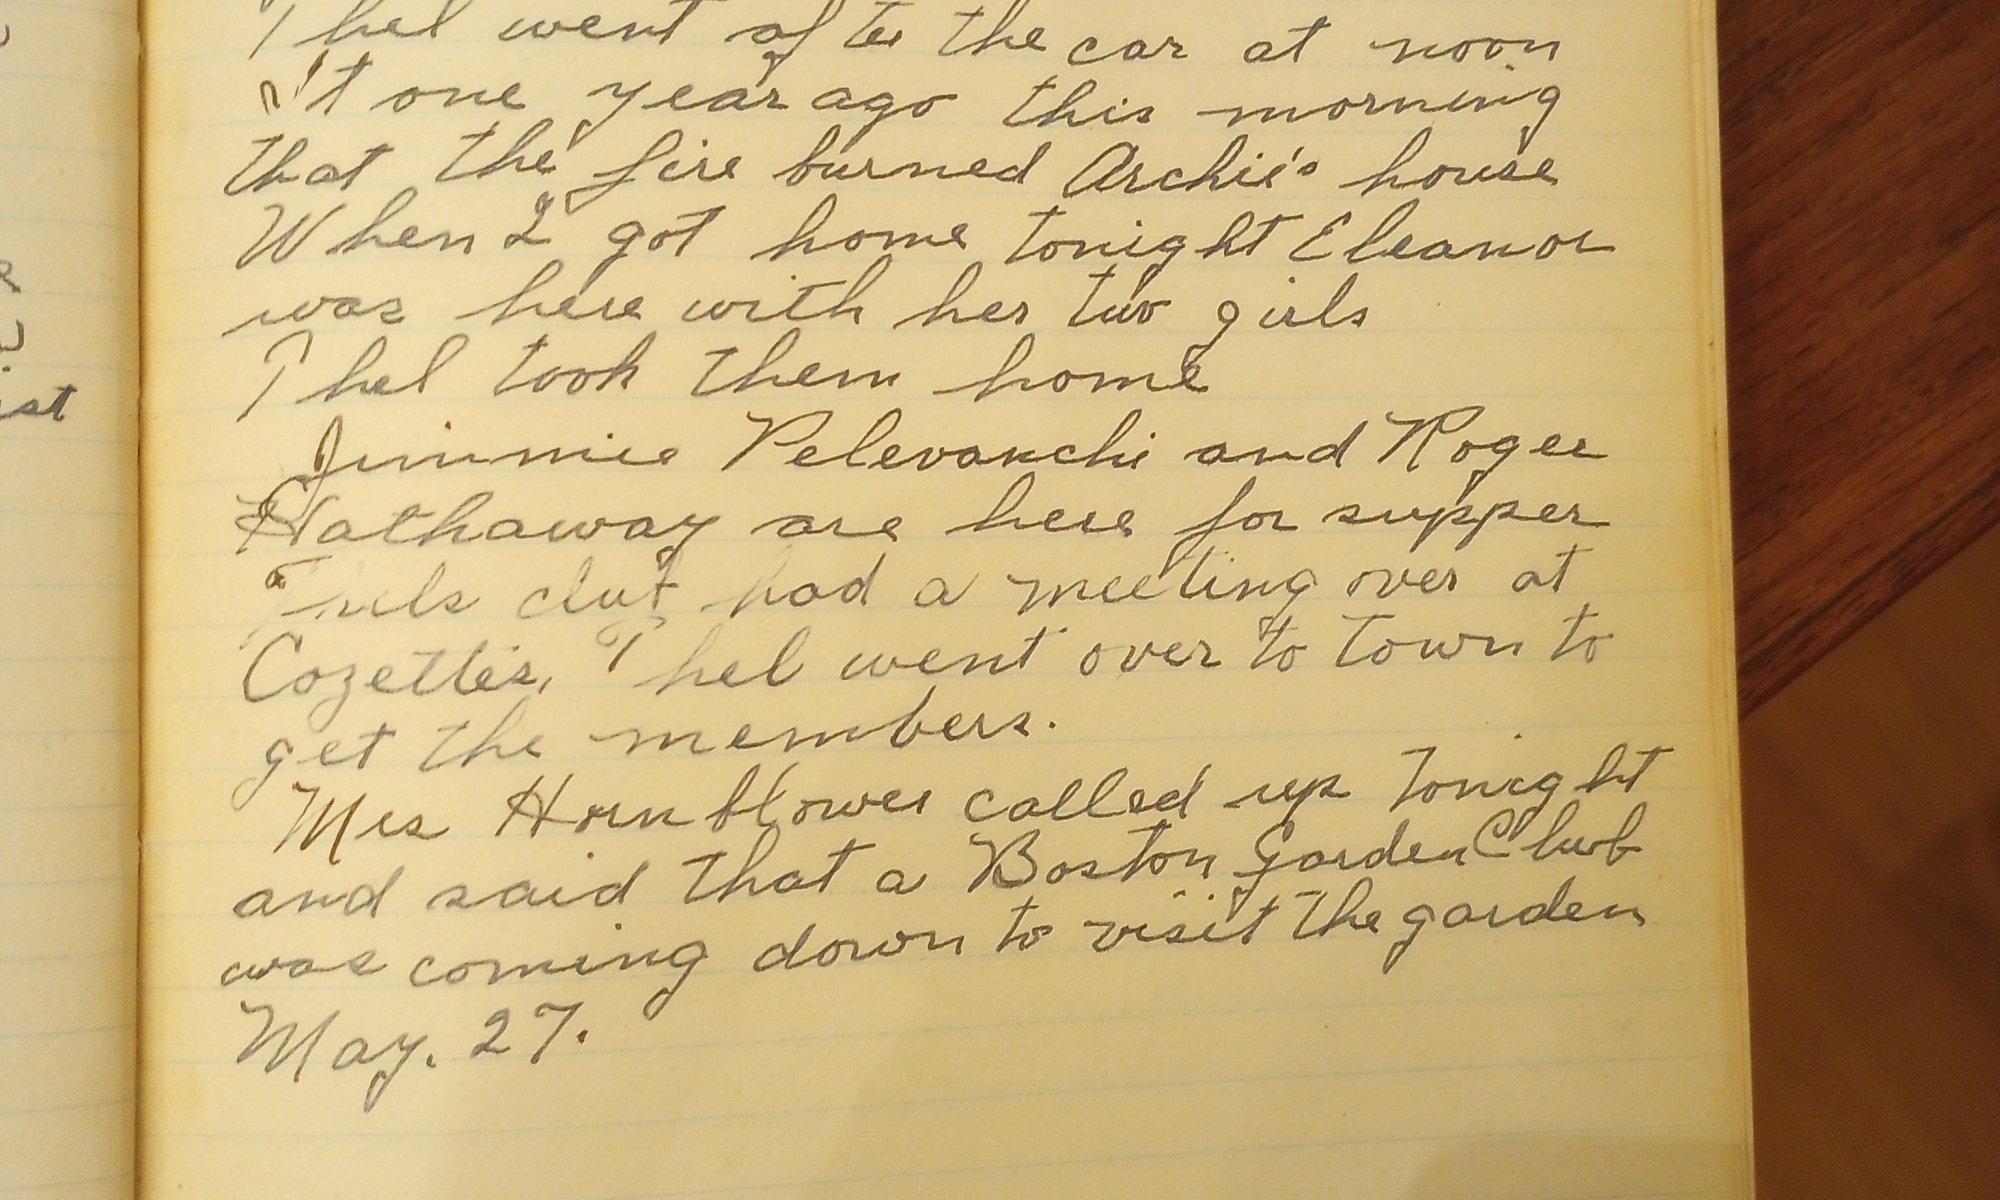 Thel went after the car at noon
't one year ago this morning
that the fire burned Archie's house
When I got home tonight Eleanor
was here with her two girls
Thel took them home
Jimmie Pelevanchi and Roger
Hathaway are here for supper
club had a meeting over at
Cozettes, Thel went over to town to
get the members.
Mrs Hornblower called up tonight
and said that a Boston Garden Club
was coming down to visit the garden
May. 27.
ist